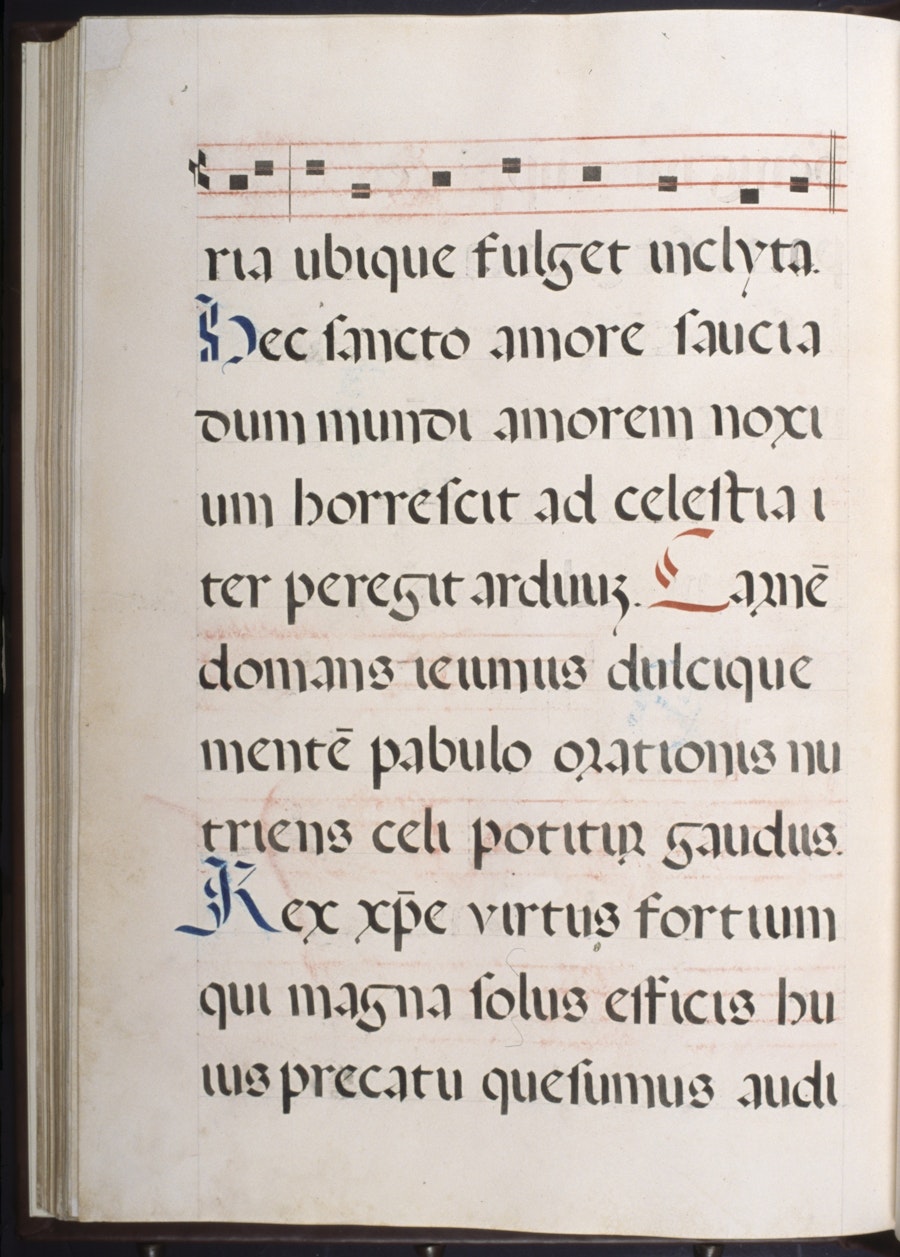 ria ubique fulget inclyta.
Hec sancto amore saucia
dum mundi amorem noxi
um horrescit ad celestia i
ter peregit arduuʒ. Carnē
domans ieiunius dulcique
mentē pabulo orationis nu
triens celi potitur gaudiis.
Rex xp̄e virtus fortium
qui magna solus efficis hu
ius precatu quesumus audi